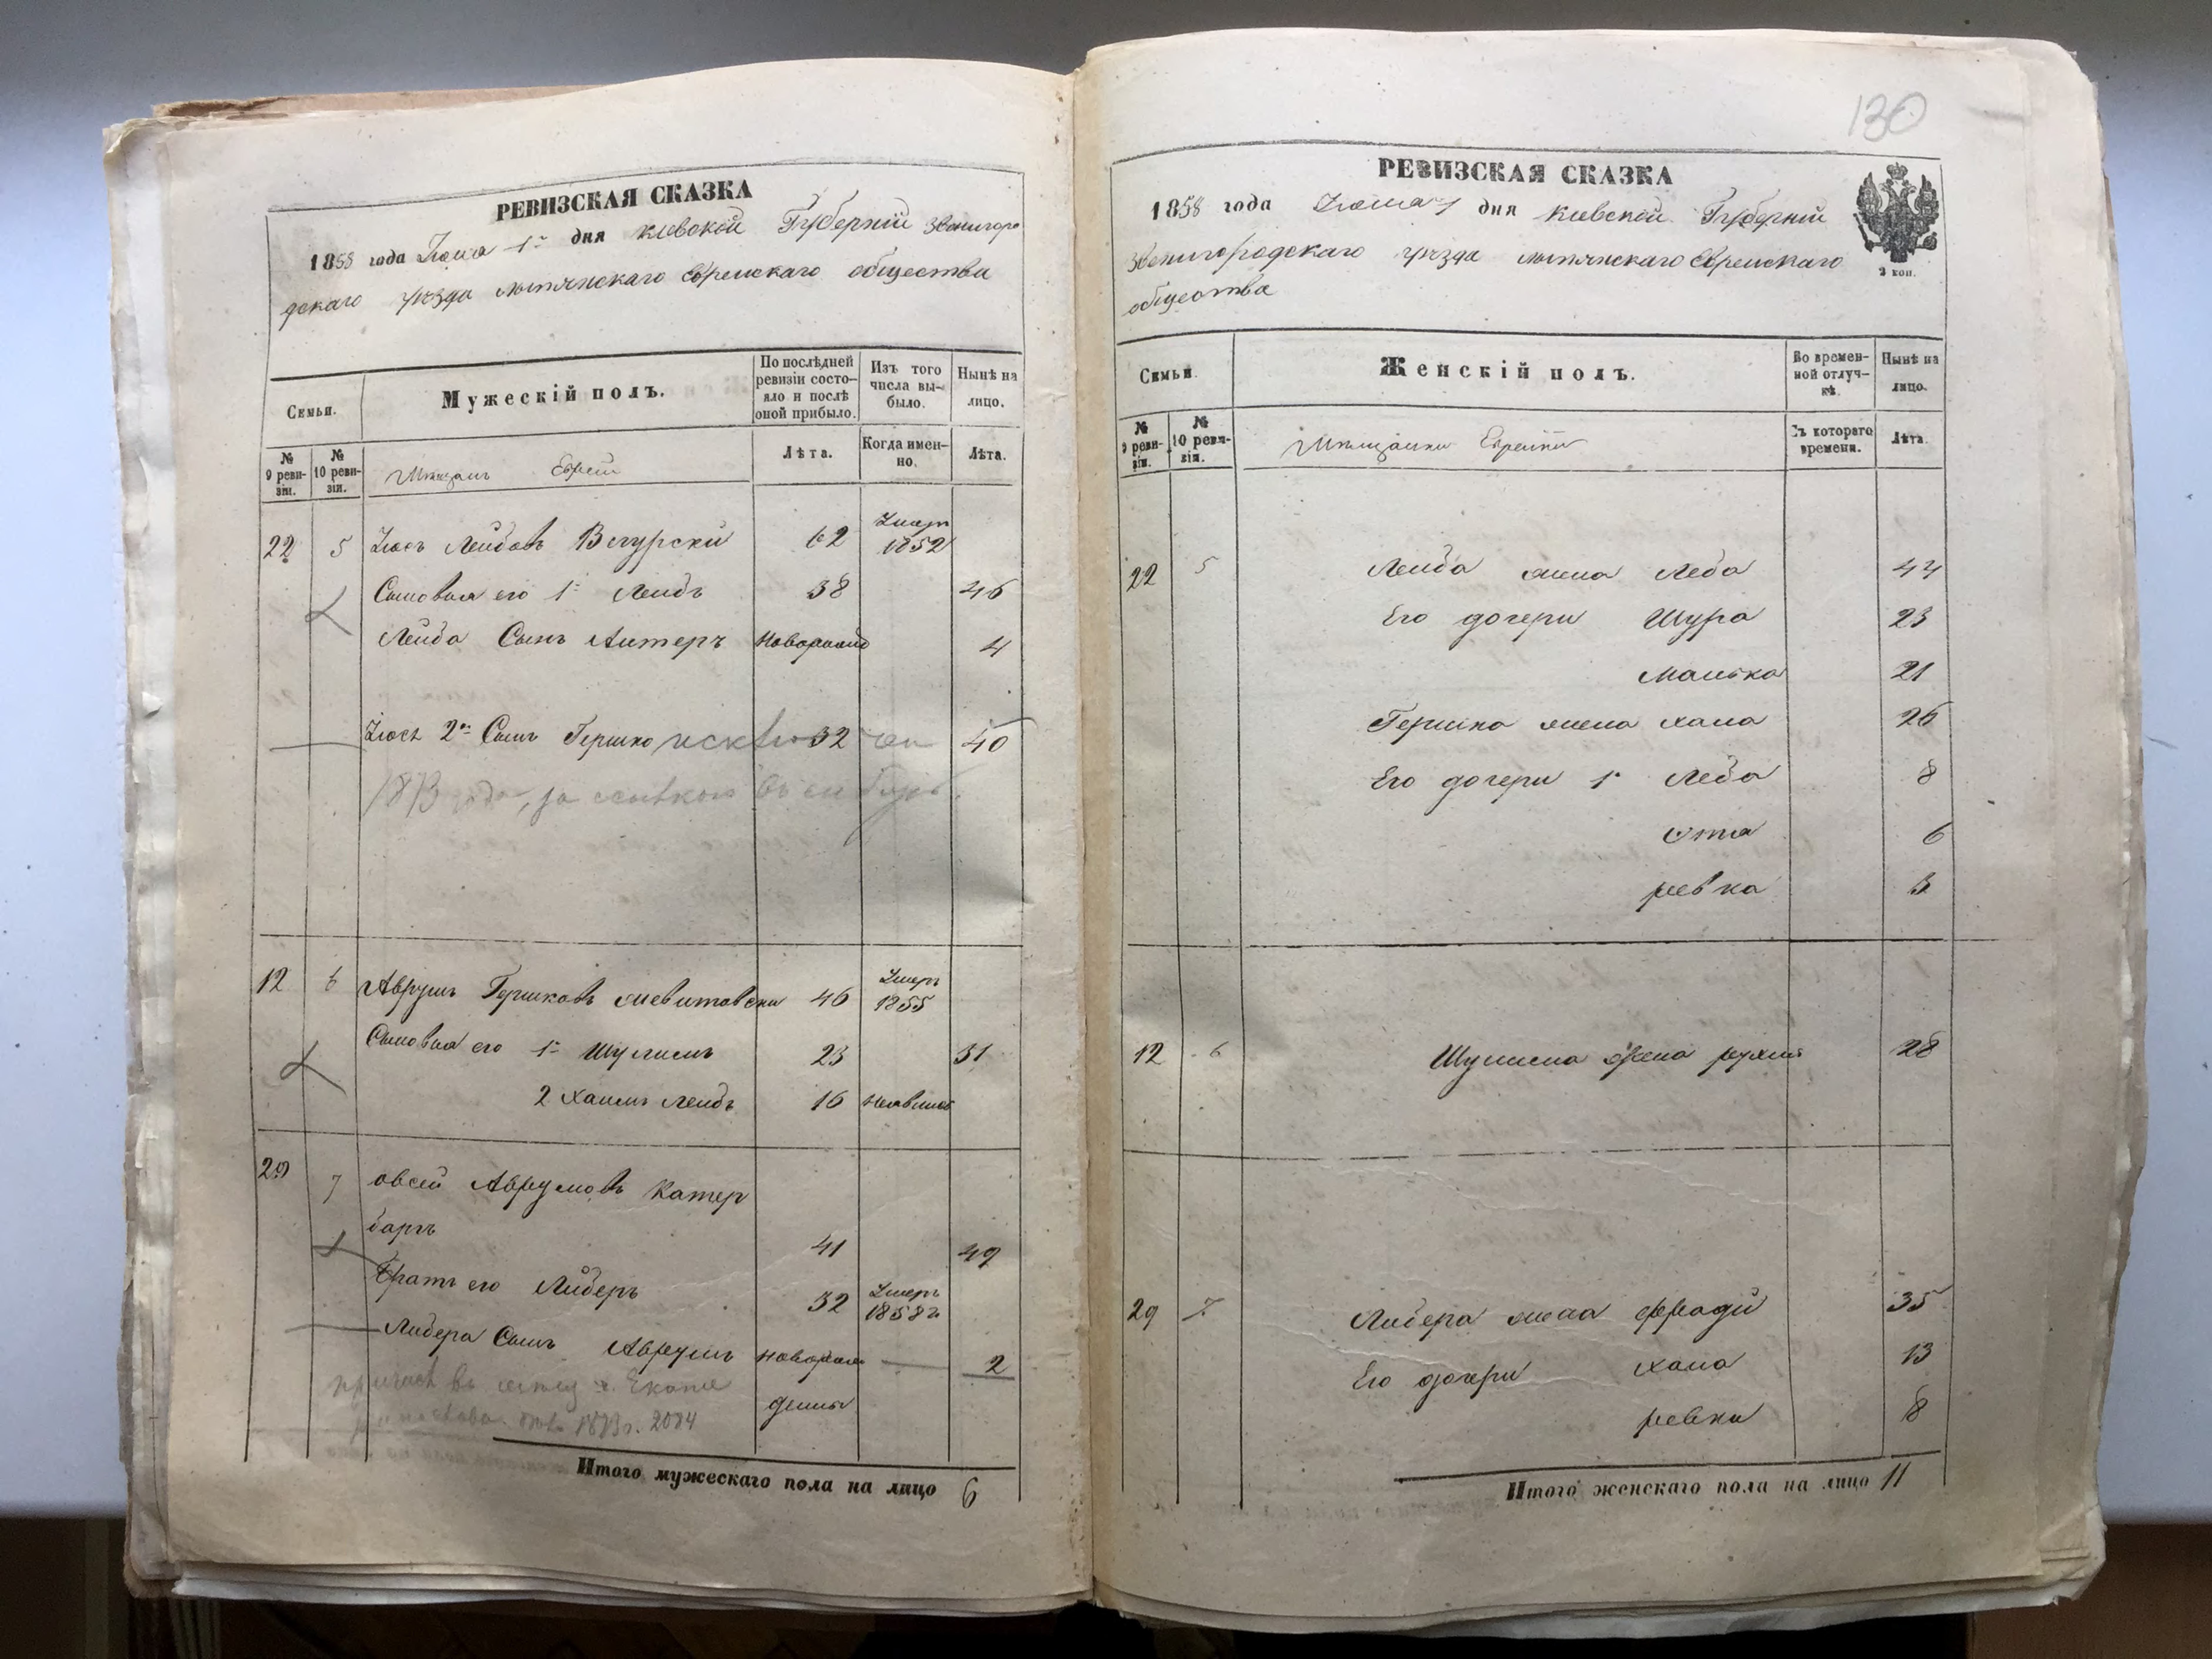 130
РЕВИЗСКАЯ СКАЗКА
1858 года Июня 1го дня Киевской Губерніи Звенигоро
дскаго уезда лысянскаго Еврейскаго общества
Семьи.
Мужескій полъ.
По послѣдней ревизіи состо-
яло и послѣ
оной прибыло.
Изъ того
числа вы-
было.
Нынѣ на
лицо.
№
9 реви-
зіи.
№
10 реви-
зіи.
Мещане Евреи
Лѣта.
Когда имен-
но.
Лѣта.
22 5 Іосъ Лейбовъ 62 Умеръ 1852
Сыновья его 1й Лейбъ 38 46
Лейба Сынъ новорожд 4
Іося 2й Сынъ Гершко исключен 32 40
1873 года, за ссылкою въ сибирь.
12 6 Аврумъ Гершковъ 46 Умеръ 1855
Сыновья его 1й Шулимъ 23 31
2 Хаимъ Лейбъ 16 неявился
29 7 овсей Аврумовъ Катер
баргъ 41 49
Братъ его Либеръ 32 Умеръ 1858г
Либера Сынъ Аврумъ новорож 2
денъ
1873г. 2084
Итого мужескаго пола на лицо 6
РЕВИЗСКАЯ СКАЗКА
1858 года Июня 1 дня Киевской Губерніи
Звенигородскаго уезда лысянскаго Еврейскаго
общества
2 коп.
Семьи.
Женскій полъ.
Во времен-
ной отлуч-
кѣ.
Нынѣ на
лицо.
№
9 реви-
зіи.
№
10 реви-
зіи.
Мещанки Еврейки
Съ котораго
времени.
Лѣта.
22 5 Лейба жена Леба 44
Его дочери Шура 23
Манька 21
Гершка жена хана 26
Его дочери 1я Леба 8
6
ревка 3
12 6 Шулима жена рухля 28
29 7 Либера жена фрадя 35
Его дочери хана 13
ревка 8
Итого женскаго пола на лицо 11